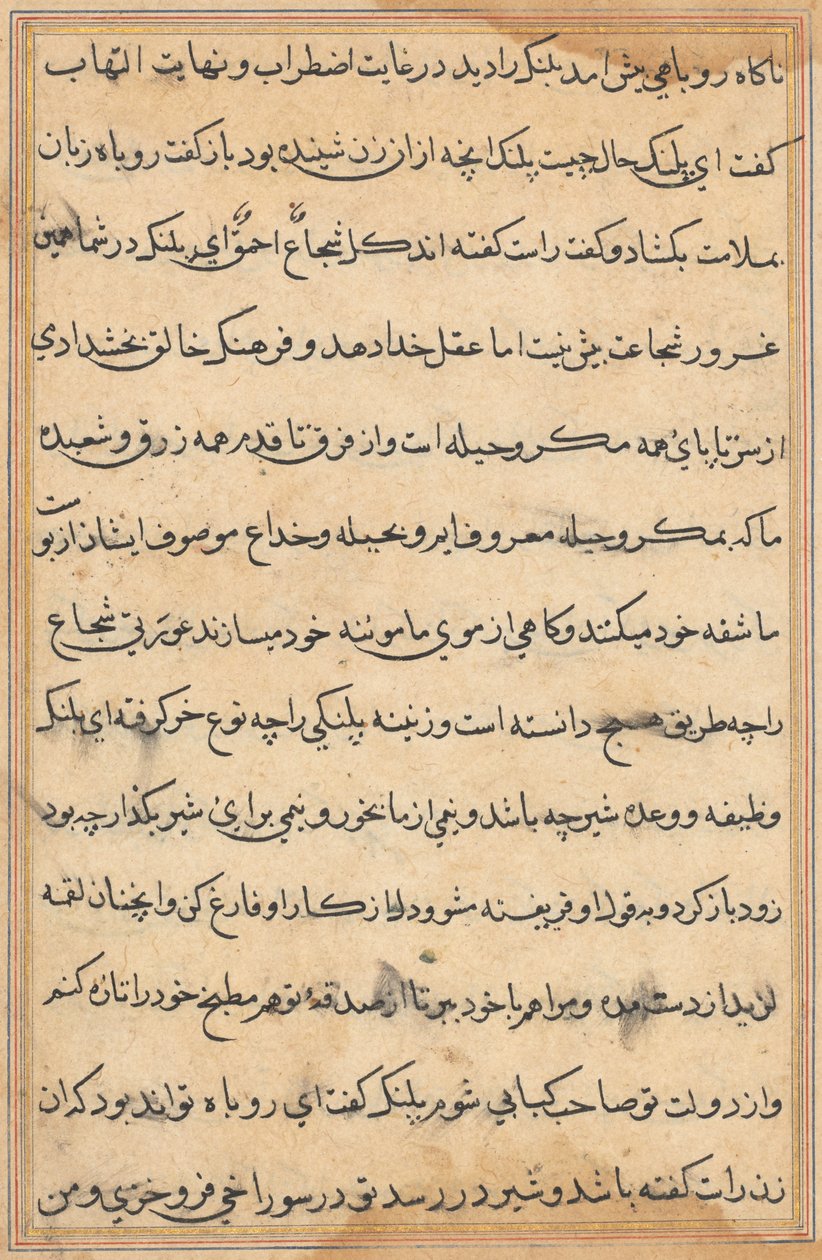 ناکاه روباهي پیش امد پلنک را دید در غایت اضطراب و نهایت التهاب
کفت اي پلنک حال چیست پلنک انچه از ان زن شنیده بود باز کفت روباه زبان
بملامت بکشاد و کفت راست کفته اند کل شجاعٍ احمقٌ اي پلنک در شما همین
غرور شجاعت بیش نیست اما عقل خدا دهد و فرهنک خالق بخشد ادمي
از سر تا پايُ همه مکر و حیله است و از فرق تا قدم همه زرق و شعبده
ما که بمکر و حیله معروفایم و بحیله و خداع موصوف ایشان از پوست
ما شقه خود میکنند و کاهي از موي ما موئنه خود میسازند عورتي شجاع
را چه طریق هیچ دانسته است و زنینه پلنکي را چه نوع خر کرفته اي پلنک
وظیفه و وعده شیر چه باشد و نیمي از ما بخور و نیمي برايُ شیر بکذار چه بود
زود باز کرد و به قول او فریفته مشو و دل از کار او فارغ کن و انچنان لقمه
لزید از دست مده و مرا هم با خود ببر تا از صدقهٔ تو هم مطبخ خود را تازه کنم
و از دولت تو صاحب کبابي شوم پلنک کفت اي روباه تواند بود که ان
زن راست کفته باشد و شیر در رسد تو در سوراخي فرو خزي و من